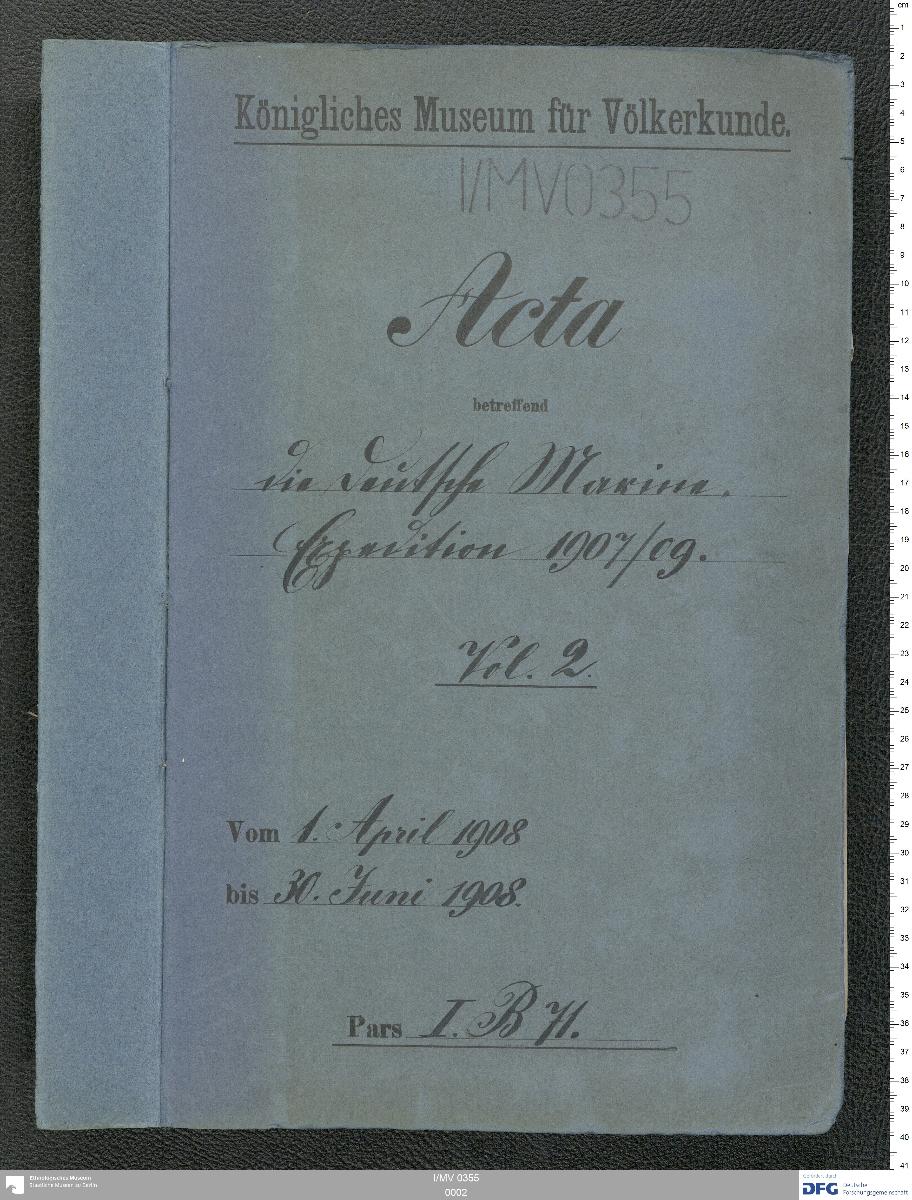 Königliches Museum für Völkerkunde.
I/MV0355
Acta
betreffend
die Deutsche Marine-
Expedition 1907/09.
Vol. 2.
Vom 1. April 1908
bis 30. Juni 1908.
Pars I. B 71.
cm
1
2
3
4
5
6
7
8
9
10
11
12
13
14
15
16
17
18
19
20
21
22
23
24
25
26
27
28
29
30
31
32
33
34
35
36
37
38
39
40
41
Ethnologisches Museum
Staatliche Museen zu Berlin
I/MV 0355
0002
Gefördert durch
DFG Deutsche
Forschungsgemeinschaft